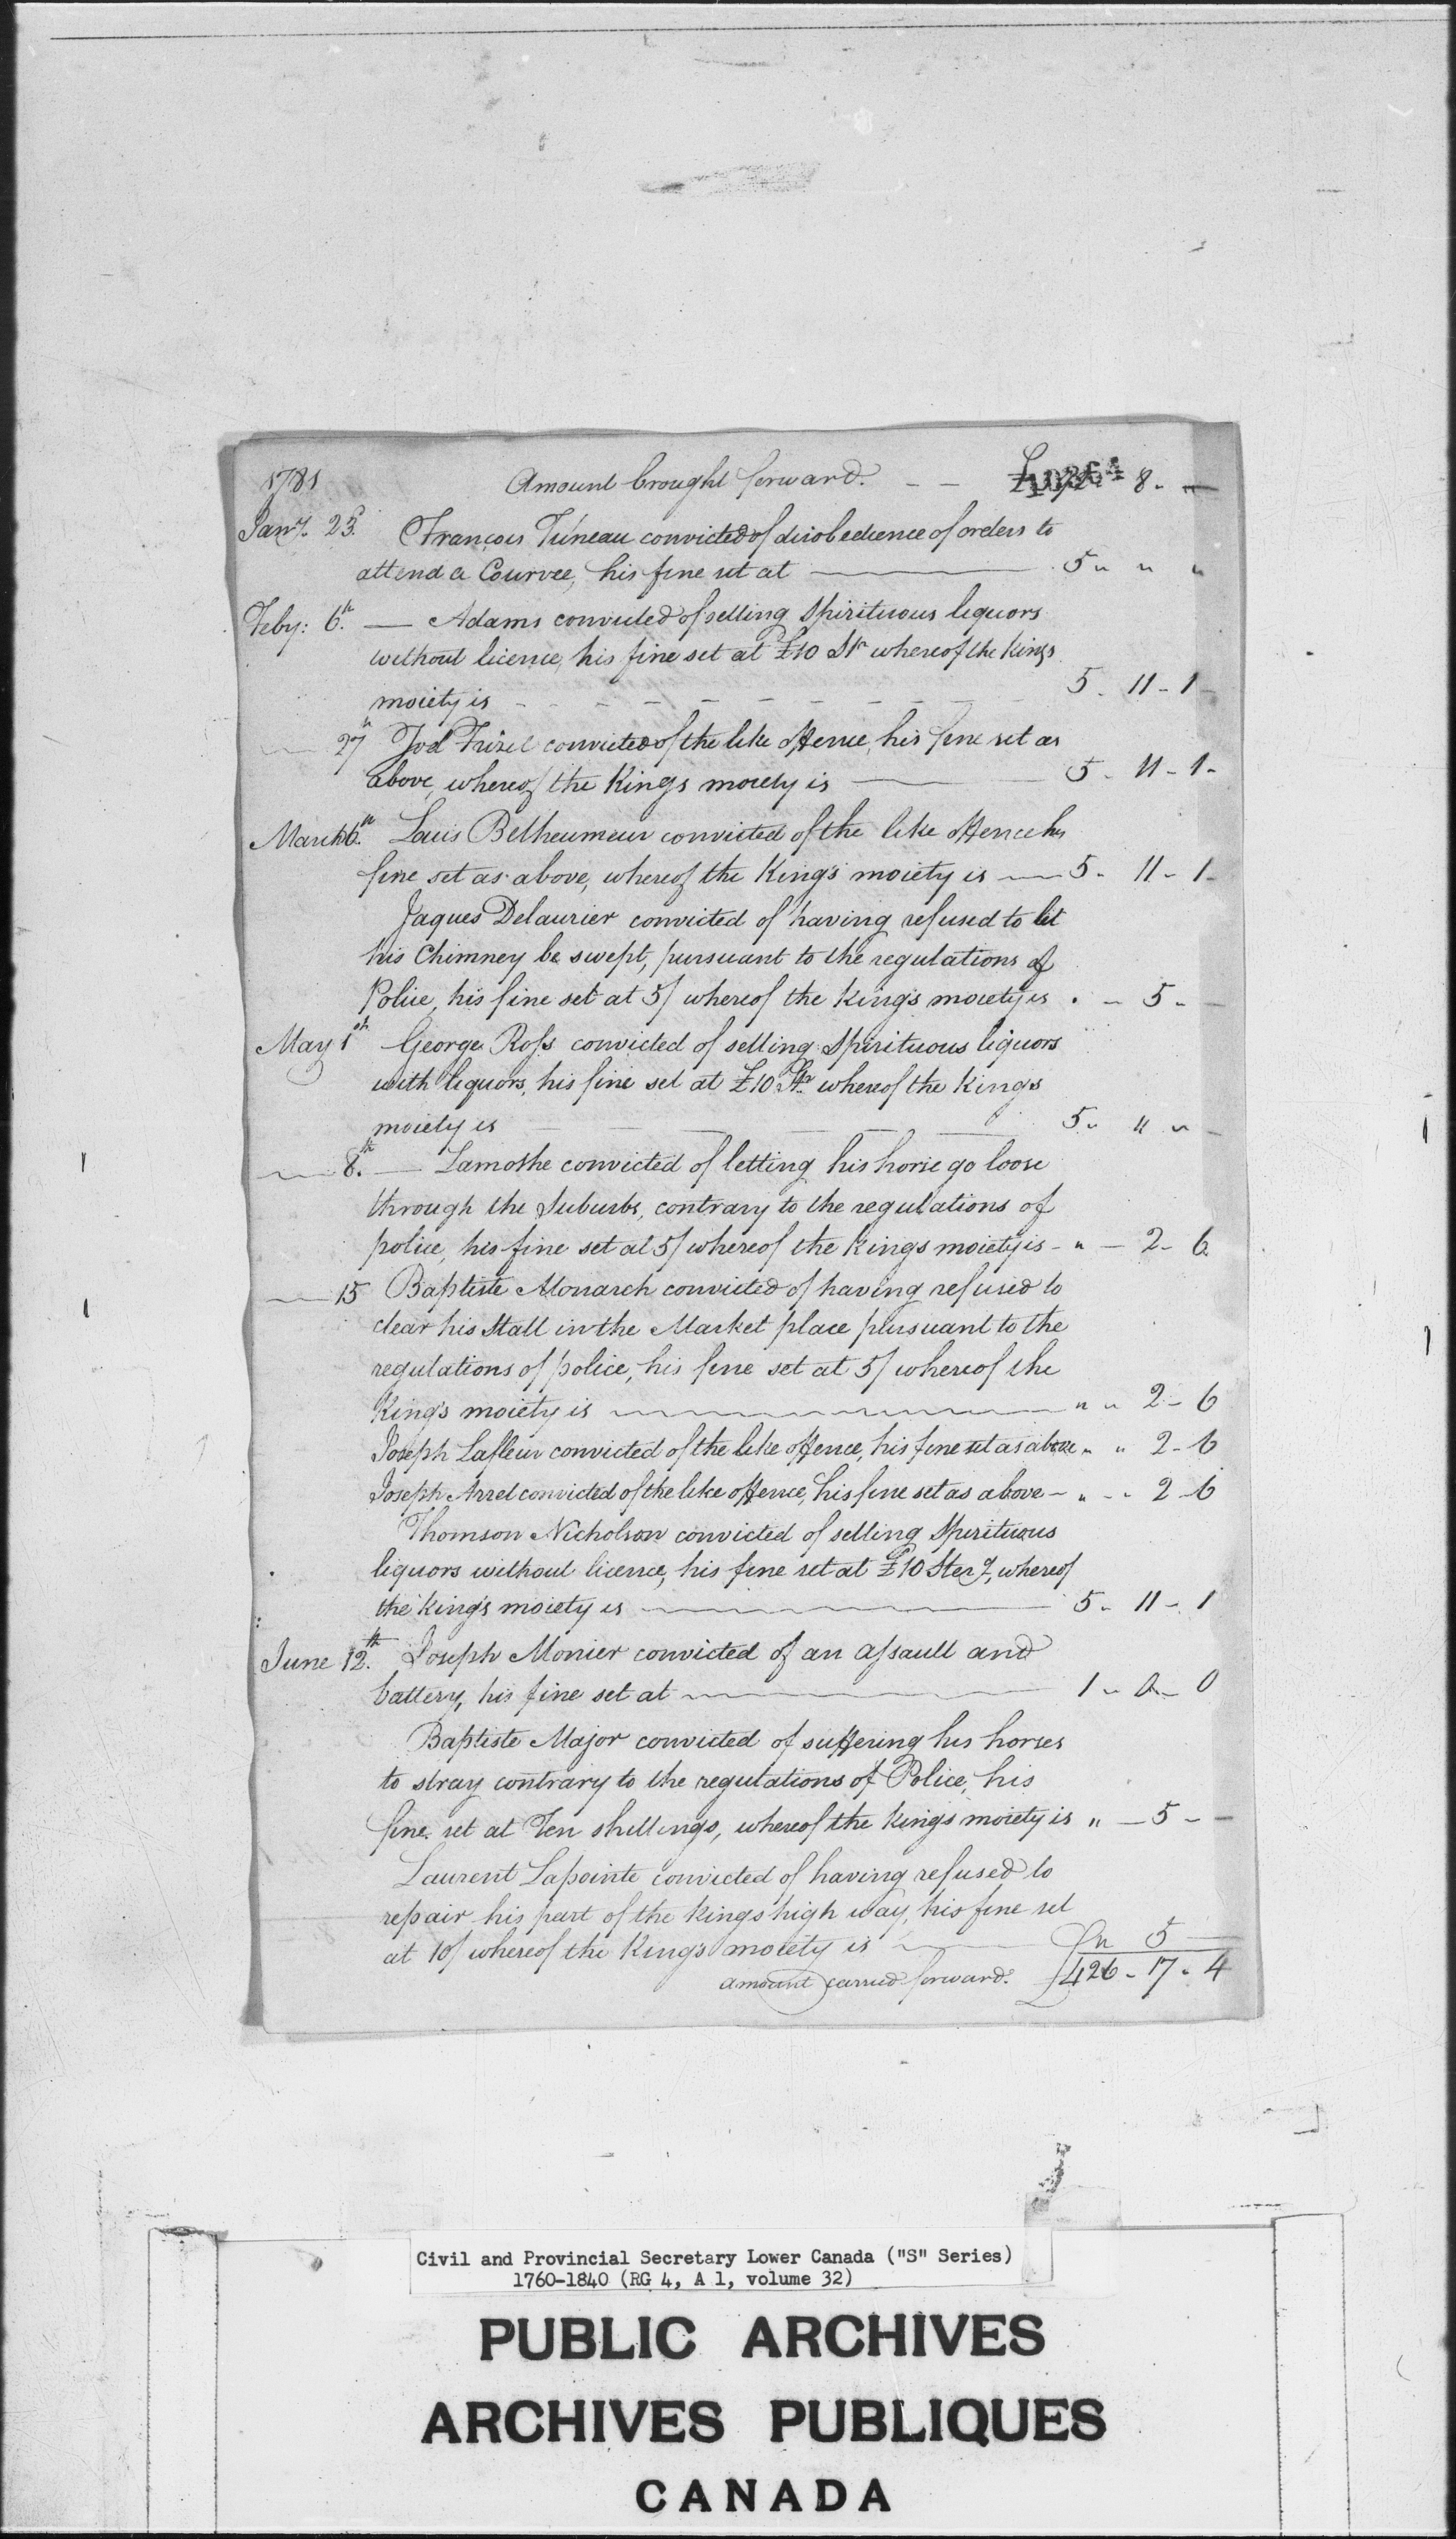 1781 Amount brought forward. - - 8 - -
Jany. 23. François Tuneau convicted of disobedience of orders to
attend a Courvee, his fine set at — 5 " " "
Feby: 6th — Adams convicted of selling Spirituous liquors
without licence, his fine set at £10 Str whereof the Kings
moiety is - - - - - - - - 5 - 11 - 1 -
— 27th Joel Frizel convicted of the like offence, his fine set as
above, whereof the Kings moiety is — 5 - 11 - 1 -
March 6th Louis Belheumeur convicted of the like offence his
fine set as above, whereof the King's moiety is — 5 - 11 - 1 -
Jaques Delaurier convicted of having refused to let
his Chimney be swept, pursuant to the regulations of
Police, his fine set at 5/ whereof the King's moiety is . - 5 - -
May 1st George Ross convicted of selling Spirituous liquors
with liquors, his fine set at £10 Str whereof the Kings
moiety is — 5 " 11 " -
— 8th — Lamothe convicted of letting his horse go loose
through the Suburbs, contrary to the regulations of
police, his fine set at 5/ whereof the Kings moiety is - " — 2 - 6.
— 15 Baptiste Monarch convicted of having refused to
clear his Stall in the Market place pursuant to the
regulations of police, his fine set at 5/ whereof the
King's moiety is — " " 2 - 6
Joseph Lafleur convicted of the like offence, his fine set as above " " 2 - 6
Joseph Arrel convicted of the like offence, his fine set as above - " - - 2 - 6
Thomson Nicholson convicted of selling Spirituous
liquors without licence, his fine set at £10 Sterg, whereof
the King's moiety is — 5 - 11 - 1
June 12th. Joseph Monier convicted of an assault and
battery, his fine set at — 1 - 0 - 0
Baptiste Major convicted of suffering his horses
to stray contrary to the regulations of Police, his
fine set at Ten shillings, whereof the Kings moiety is " — 5 - -
Laurent Lapointe convicted of having refused to
repair his part of the Kings high way, his fine set
at 10/ whereof the King's moiety is — " 5 —
amount carried forward. £426 - 17 - 4
Civil and Provincial Secretary Lower Canada ("S" Series)
1760-1840 (RG 4, A 1, volume 32)
PUBLIC ARCHIVES
ARCHIVES PUBLIQUES
CANADA